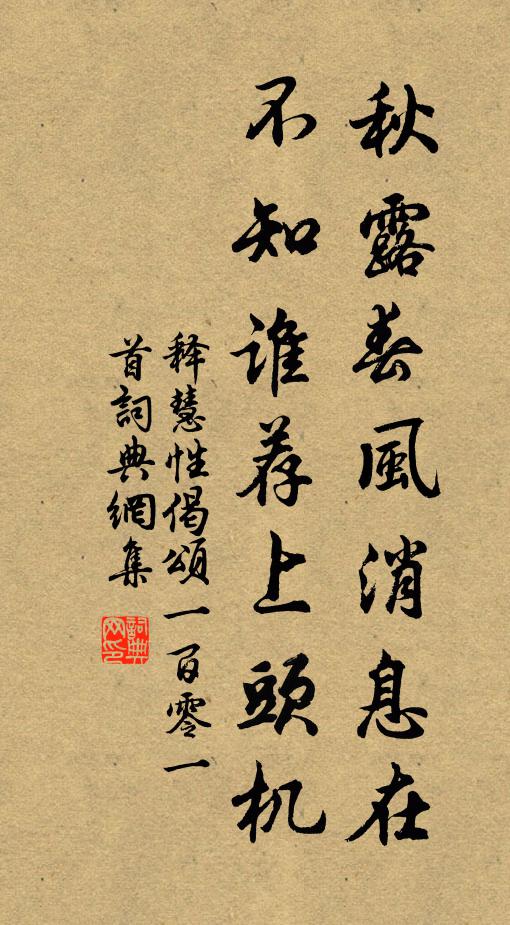 秋露春風消息在
不知谁荐上頭机
释慧性偈頌一百零一
首詞典網集
詞典网印